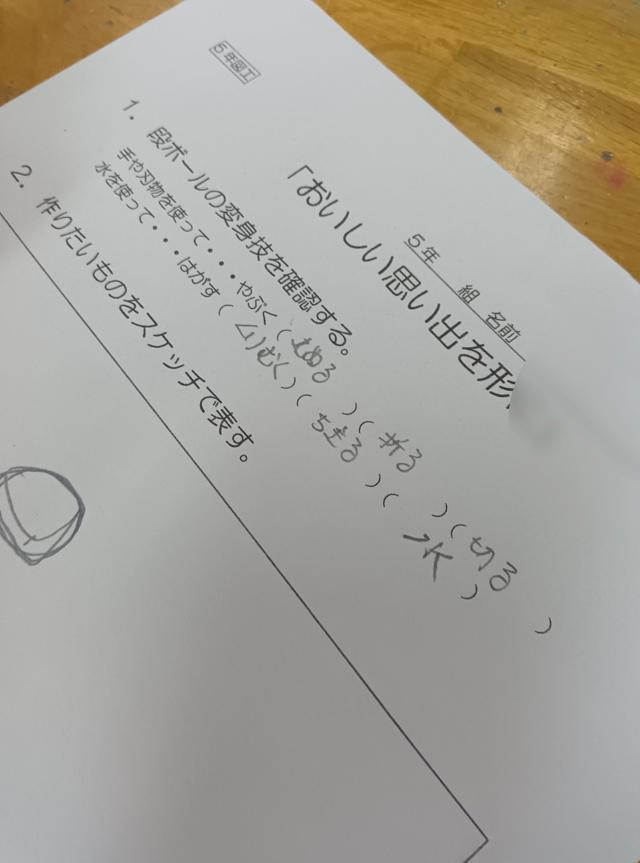 5年図工
5年 組 名前
「おいしい思い出を形
1. 段ボールの変身技を確認する。
手や刃物を使って・・・やぶく( 丸める )( 折る )( 切る )
水を使って・・・はがす( )( )( 水 )
2. 作りたいものをスケッチで表す。